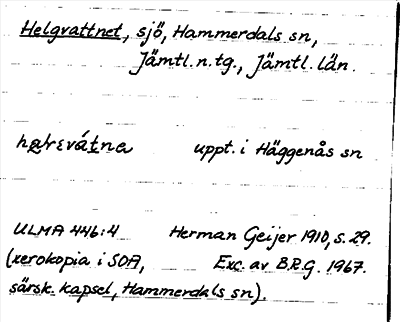 Helgvattnet, sjö, Hammerdals sn,
Jämtl. n. tg., Jämtl. län.
uppt. i Häggenås sn
ULMA 446:4 Herman Geijer 1910, s. 29.
(xerokopia i SOA, Exc. av B.R.G. 1967.
särsk. kapsel, Hammerdals sn).